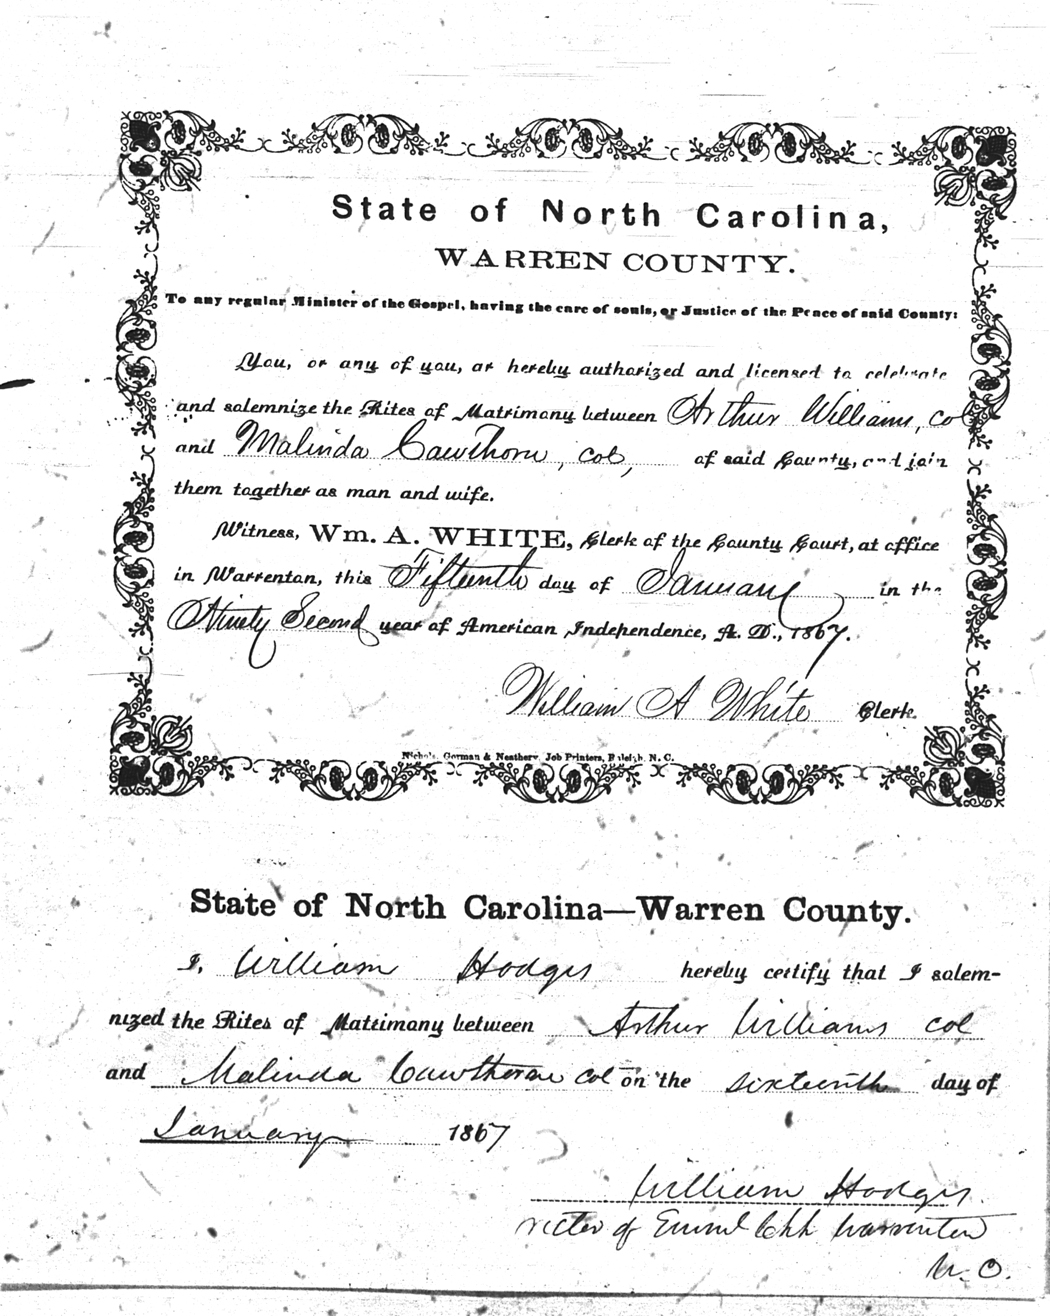 State of North Carolina,
WARREN COUNTY.
To any regular Minister of the Gospel, having the care of souls, or Justice of the Peace of said County:
You, or any of you, ar hereby authorized and licensed to celebrate
and solemnize the Rites of Matrimony between Arthur Williams, col
and Malinda Cawthorn, col, of said County, and join
them together as man and wife.
Witness, Wm. A. WHITE, Clerk of the County Court, at office
in Warrenton, this Fifteenth day of January in the
Ninety Second year of American Independence, A. D., 1867.
William A White Clerk
Nichols, Gorman & Neathery, Job Printers, Raleigh, N. C.
State of North Carolina—Warren County.
I, William Hodges hereby certify that I solem-
nized the Rites of Matrimony between Arthur Williams col
and Malinda Cawthorne col on the sixteenth day of
January 1867
William Hodges.
rector of Emml Chh Warrenton
N. C.